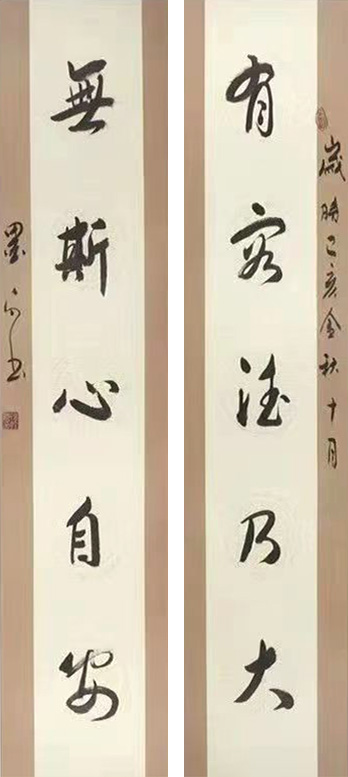 歲時己亥金秋十月
有容德乃大
無斯心自安
墨书